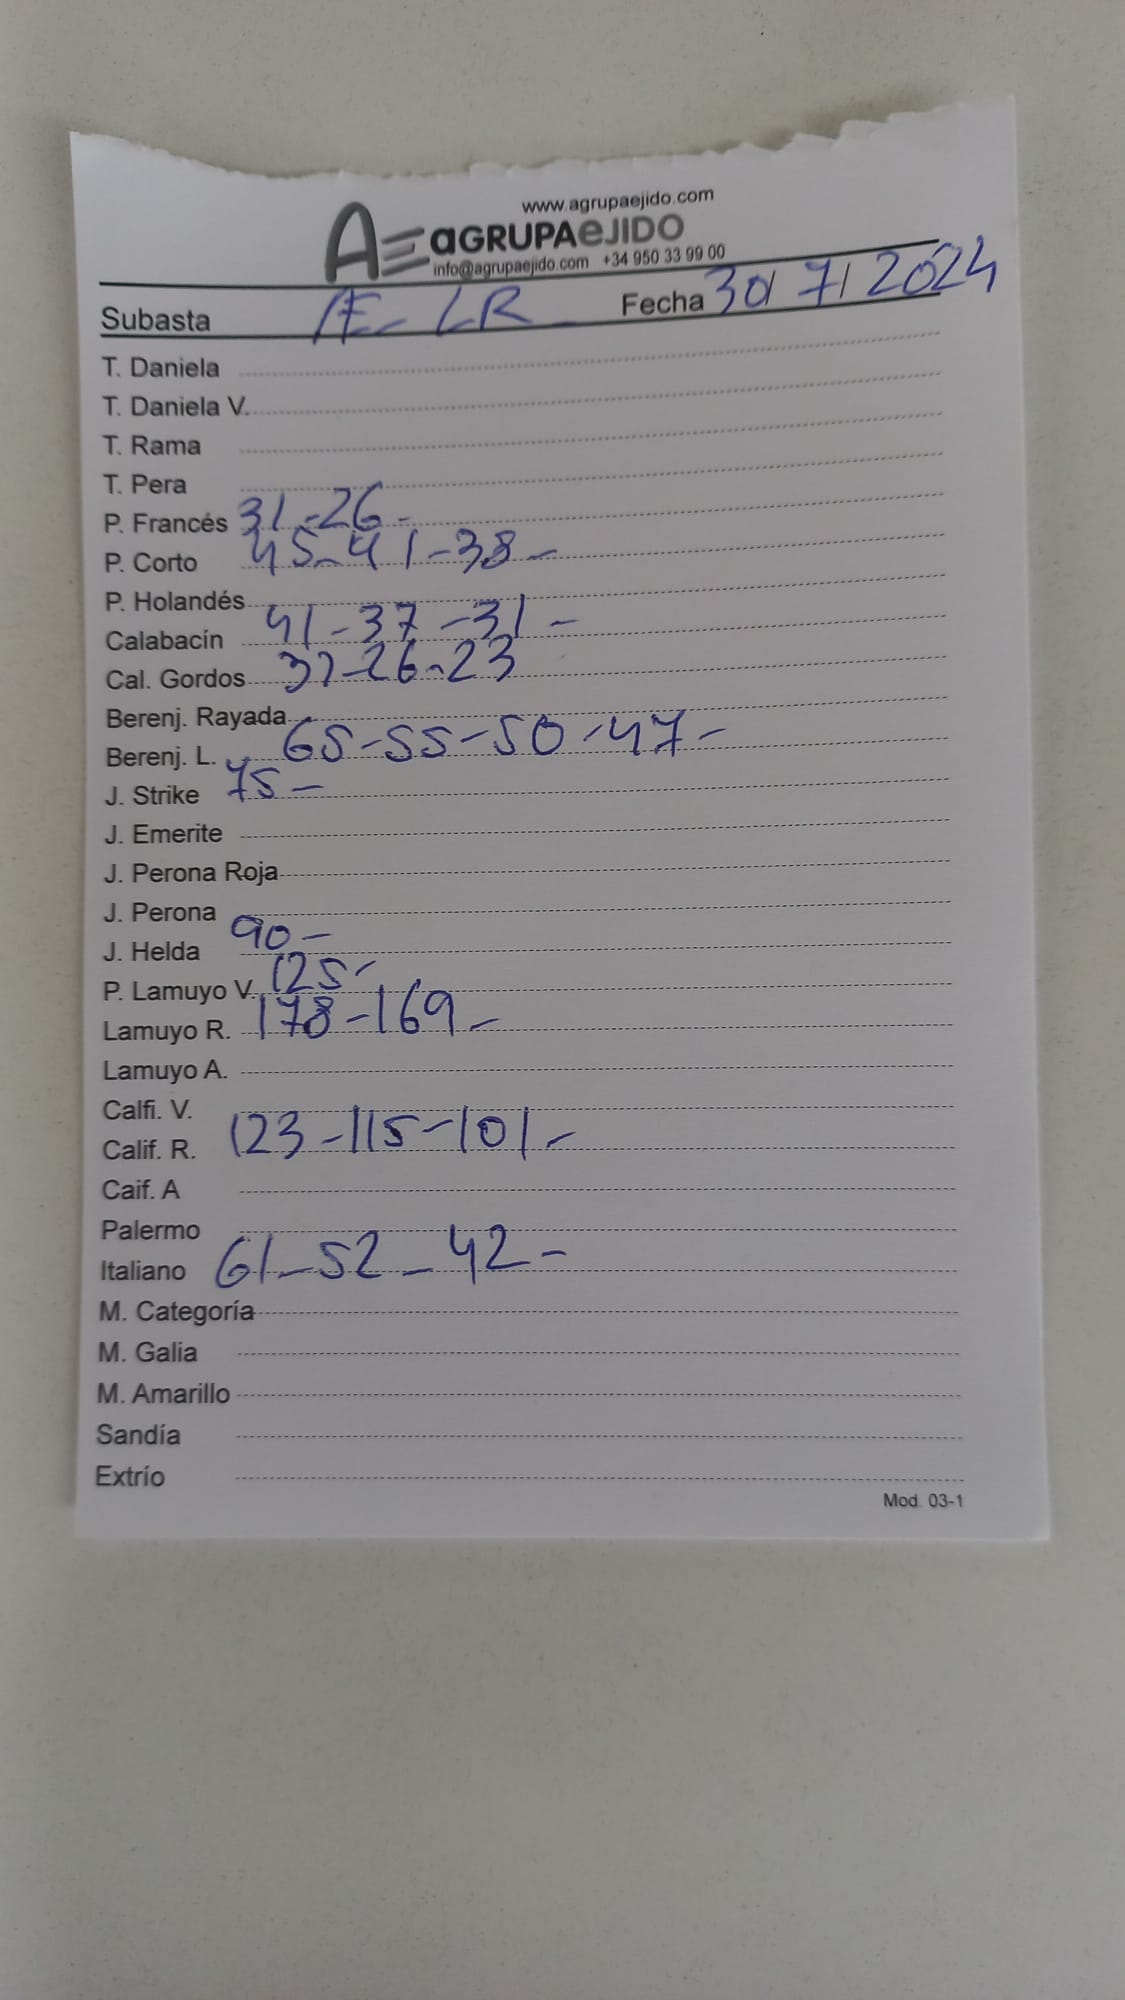 www.agrupaejido.com
AE aGRUPAeJIDO
info@agrupaejido.com +34 950 33 99 00
Subasta AE - LR - Fecha 30/7/2024
T. Daniela
T. Daniela V.
T. Rama
T. Pera
P. Francés 31-26-
P. Corto 45-41-38-
P. Holandés
Calabacín 41-37-31-
Cal. Gordos 37-26-23
Berenj. Rayada
Berenj. L. 65-55-50-47-
J. Strike 75-
J. Emerite
J. Perona Roja
J. Perona
J. Helda 90-
P. Lamuyo V. 125-
Lamuyo R. 178-169-
Lamuyo A.
Calfi. V.
Calif. R. 123-115-101-
Caif. A
Palermo
Italiano 61-52-42-
M. Categoría
M. Galia
M. Amarillo
Sandía
Extrío
Mod. 03-1